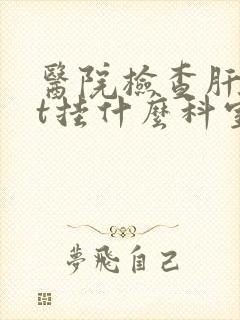 醫院檢查肝
t挂什麼科室
夢飛自己